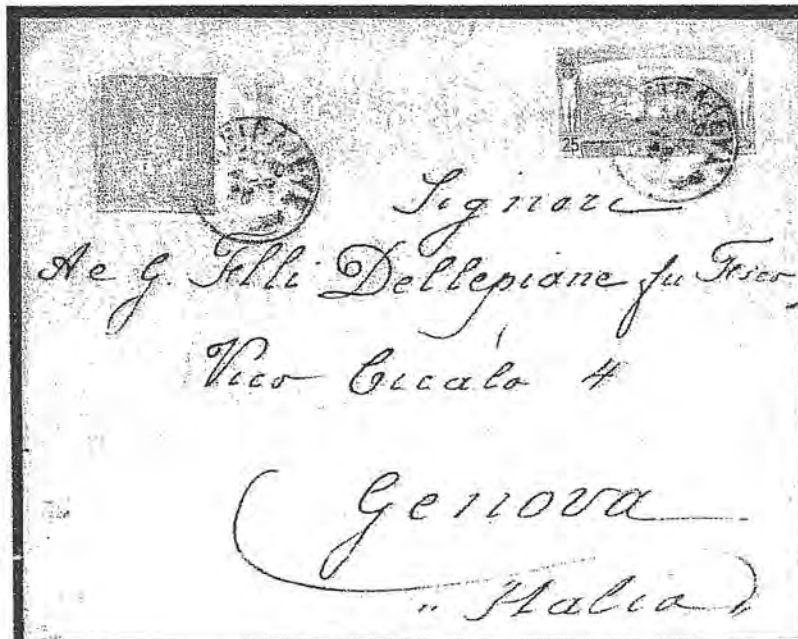 25
Signori
A e G. Flli Dellepiane fu Fsco,
Vico Cicala 4
Genova
„ Italia